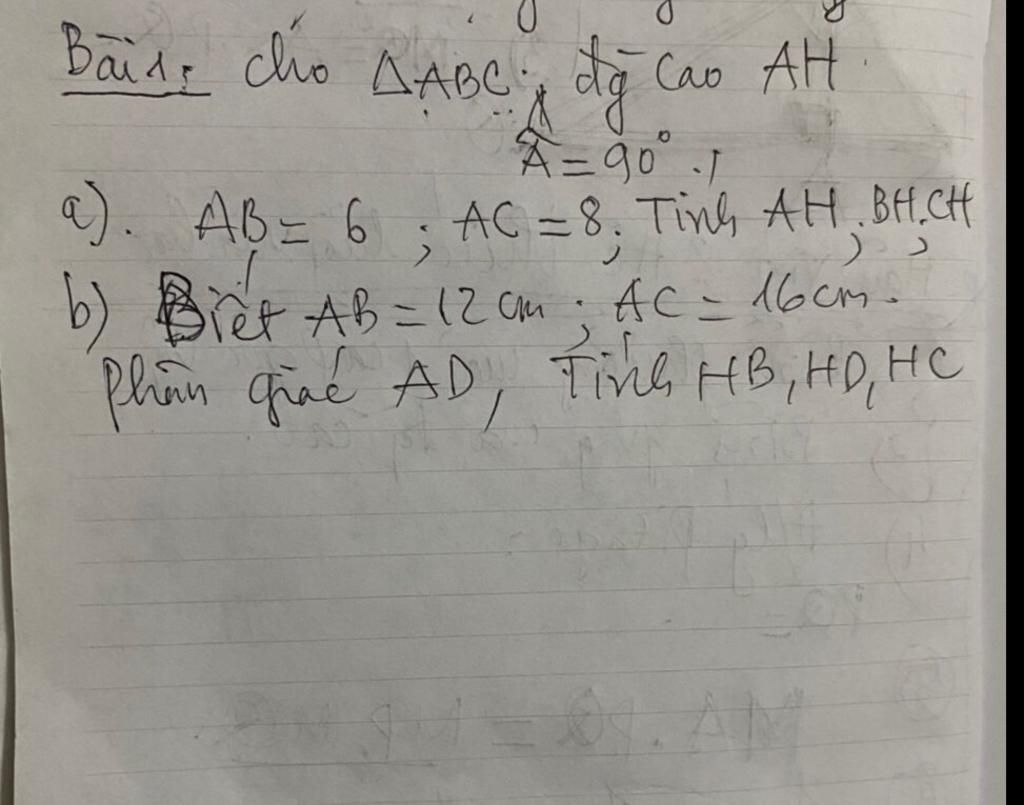 Bài 1: cho ΔABC; đg cao AH
Â = 90°;
a). AB = 6 ; AC = 8; Tính AH; BH; CH
b) Biết AB = 12 cm ; AC = 16 cm.
phân giác AD, Tính HB, HD, HC